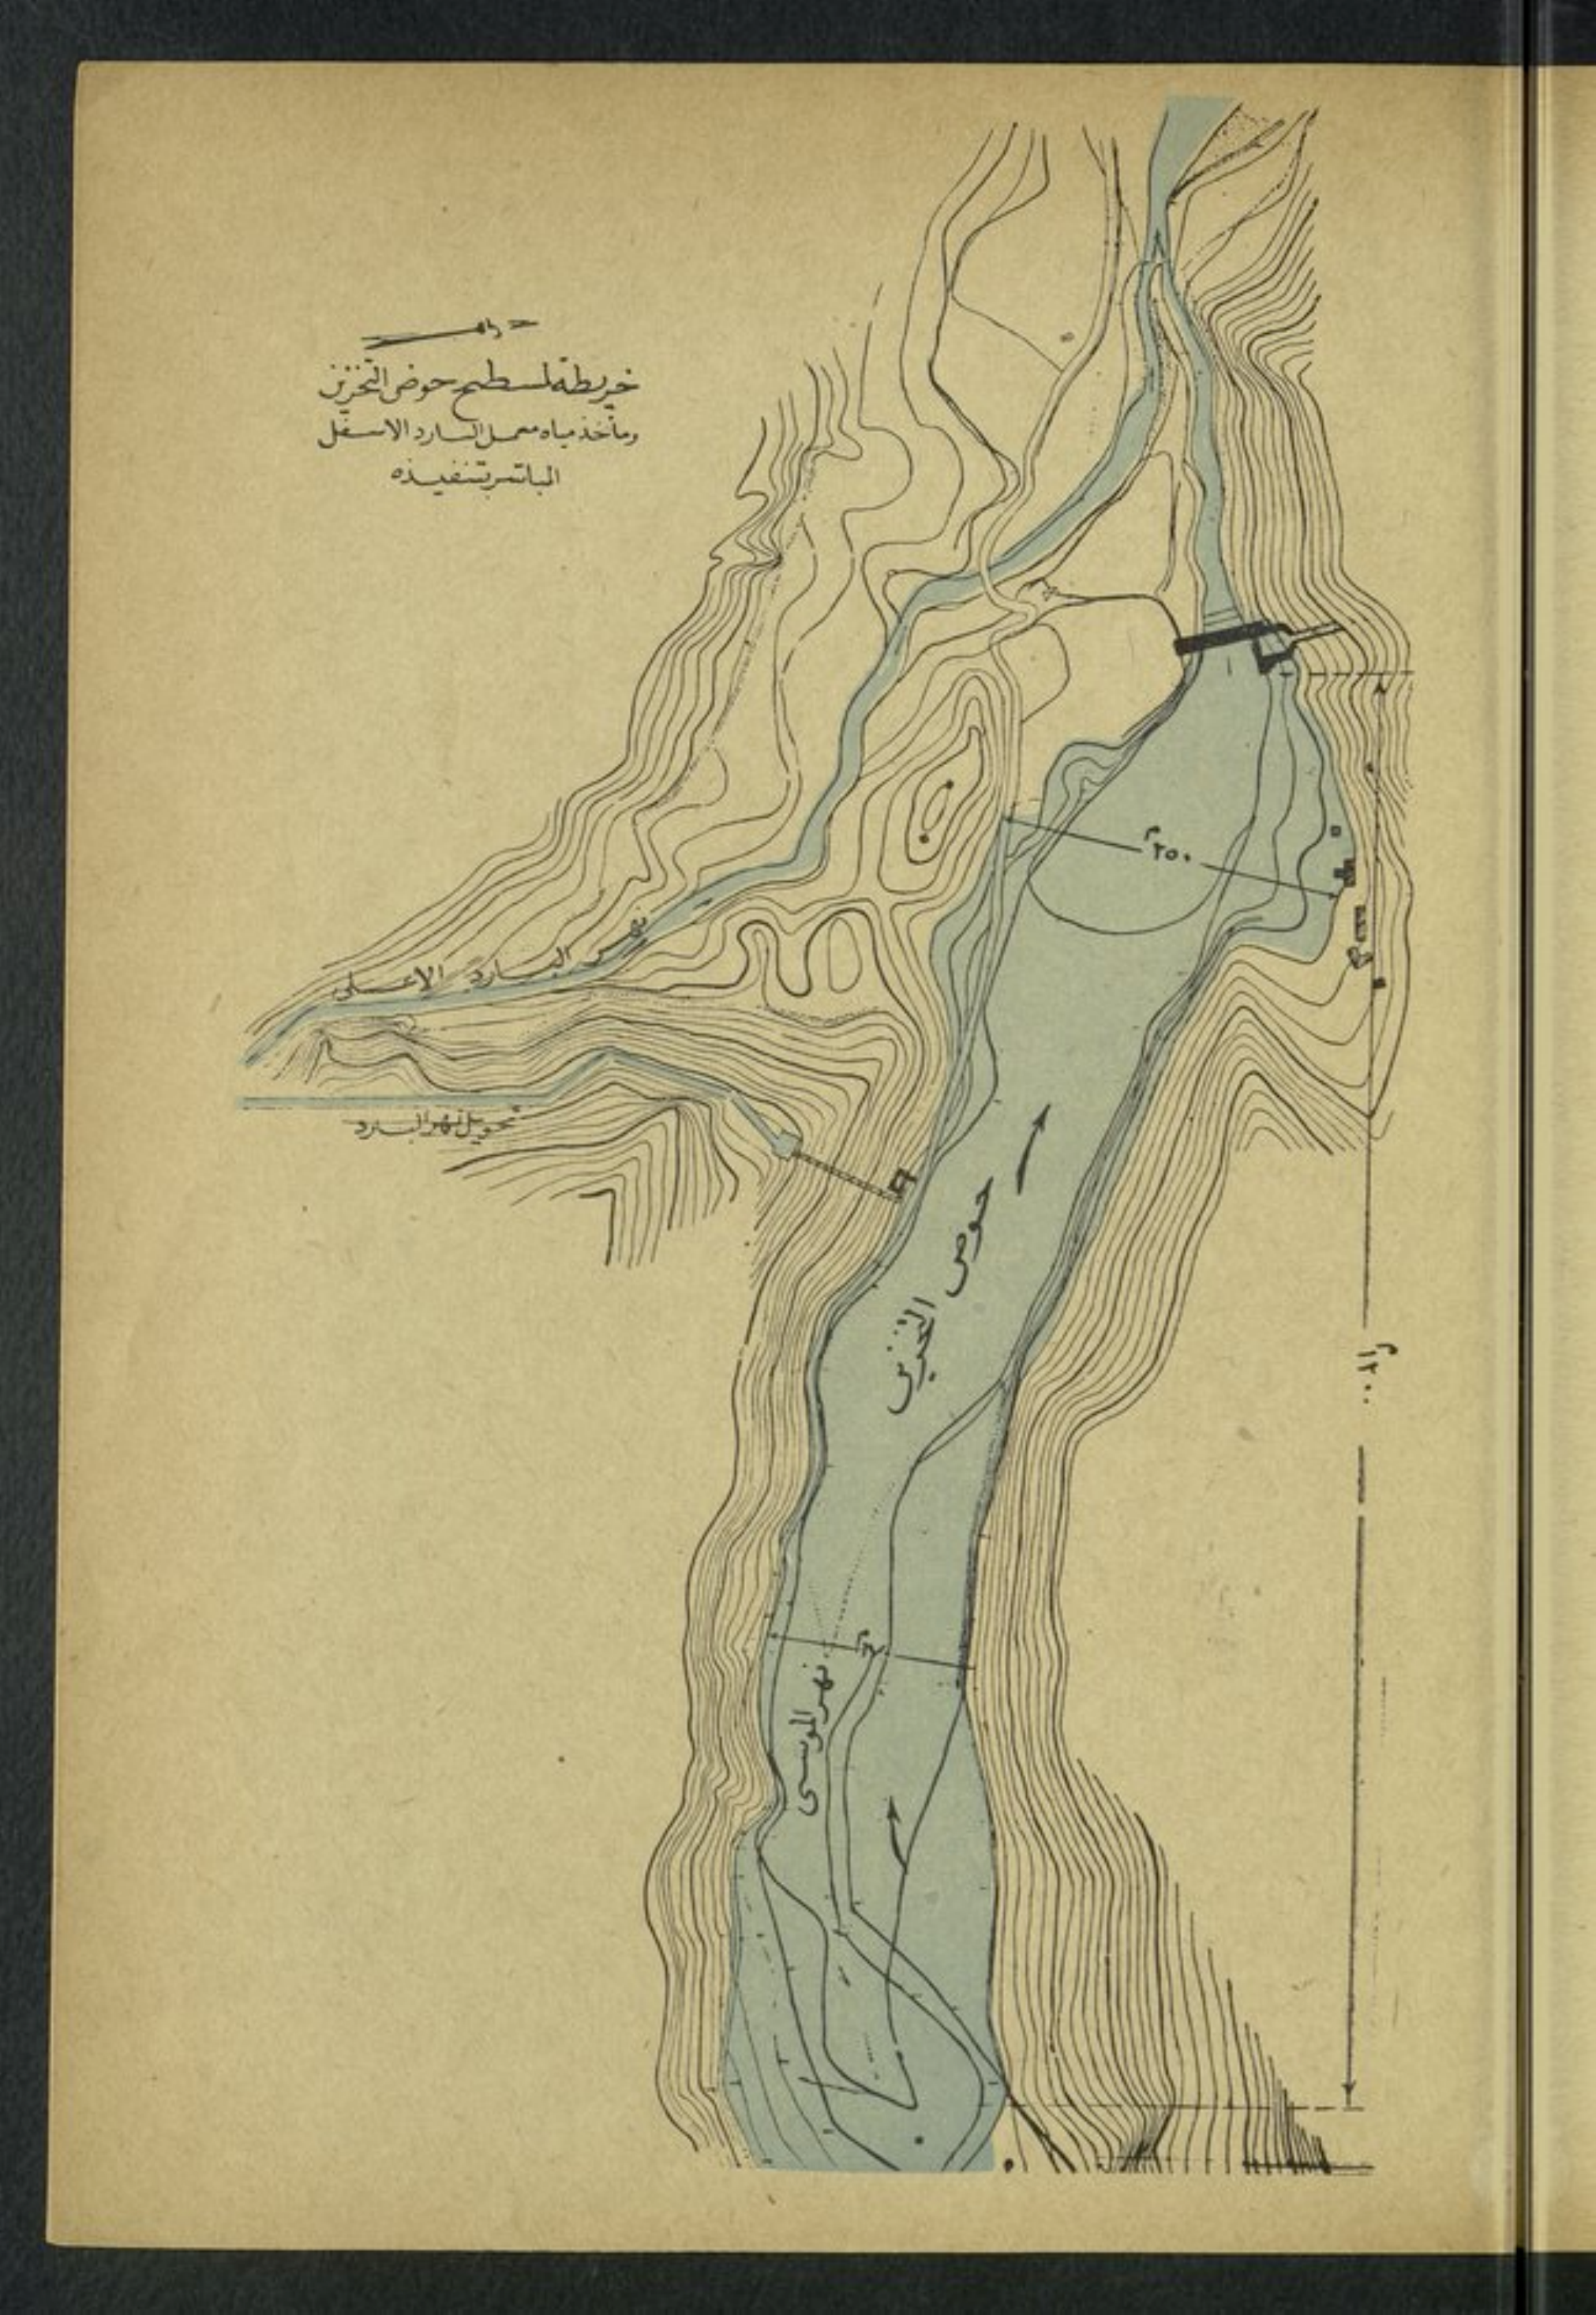 خريطة لمسطح حوض التخزين
ومأخذ مياه معمل البارد الاسفل
المباشر بتنفيذه
نهر البارد الاعلى
تحويل نهر البارد
٢٥٠م
حوض التخزين
١٢٠٠م
نهر الموسى